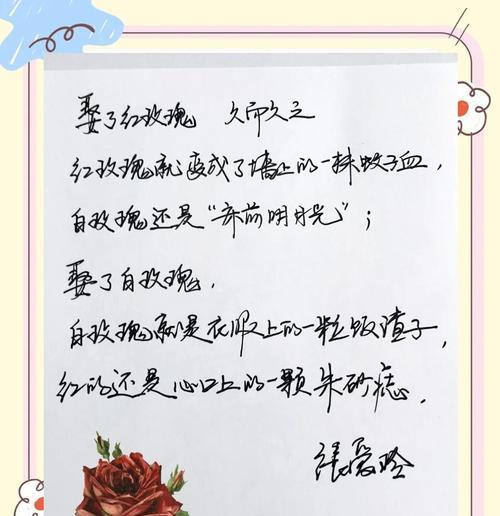 娶了红玫瑰 久而久之
红玫瑰就变成了墙上的一抹蚊子血，
白玫瑰还是“床前明月光”；
娶了白玫瑰，
白玫瑰就是衣服上的一粒饭渣子，
红的还是心口上的一颗朱砂痣．
张爱玲